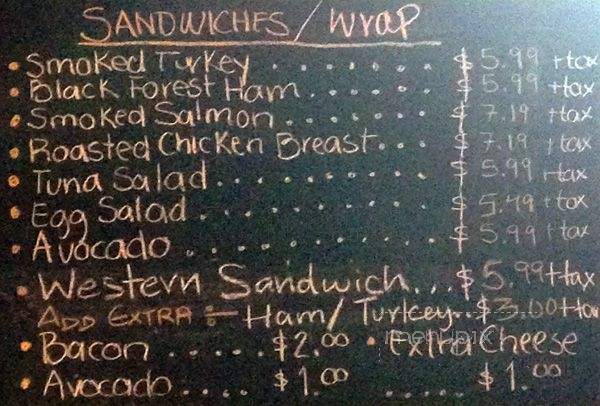 SANDWICHES / Wrap
• Smoked Turkey . . . . . . . . $ 5.99 +tax
• Black Forest Ham . . . . . . $ 5.99 +tax
• Smoked Salmon . . . . . . . $ 7.19 +tax
• Roasted Chicken Breast . . . $ 7.19 +tax
• Tuna Salad . . . . . . . . . . $ 5.99 +tax
• Egg Salad . . . . . . . . . . . $ 5.49 +tax
• Avocado . . . . . . . . . . . $ 5.99 +tax
• Western Sandwich... $5.99+tax
ADD EXTRA :- Ham/ Turkey..$3.00+tax
• Bacon ...... $2.00 • Extra Cheese
• Avocado ..... $1.00 ..... $1.00
menupix